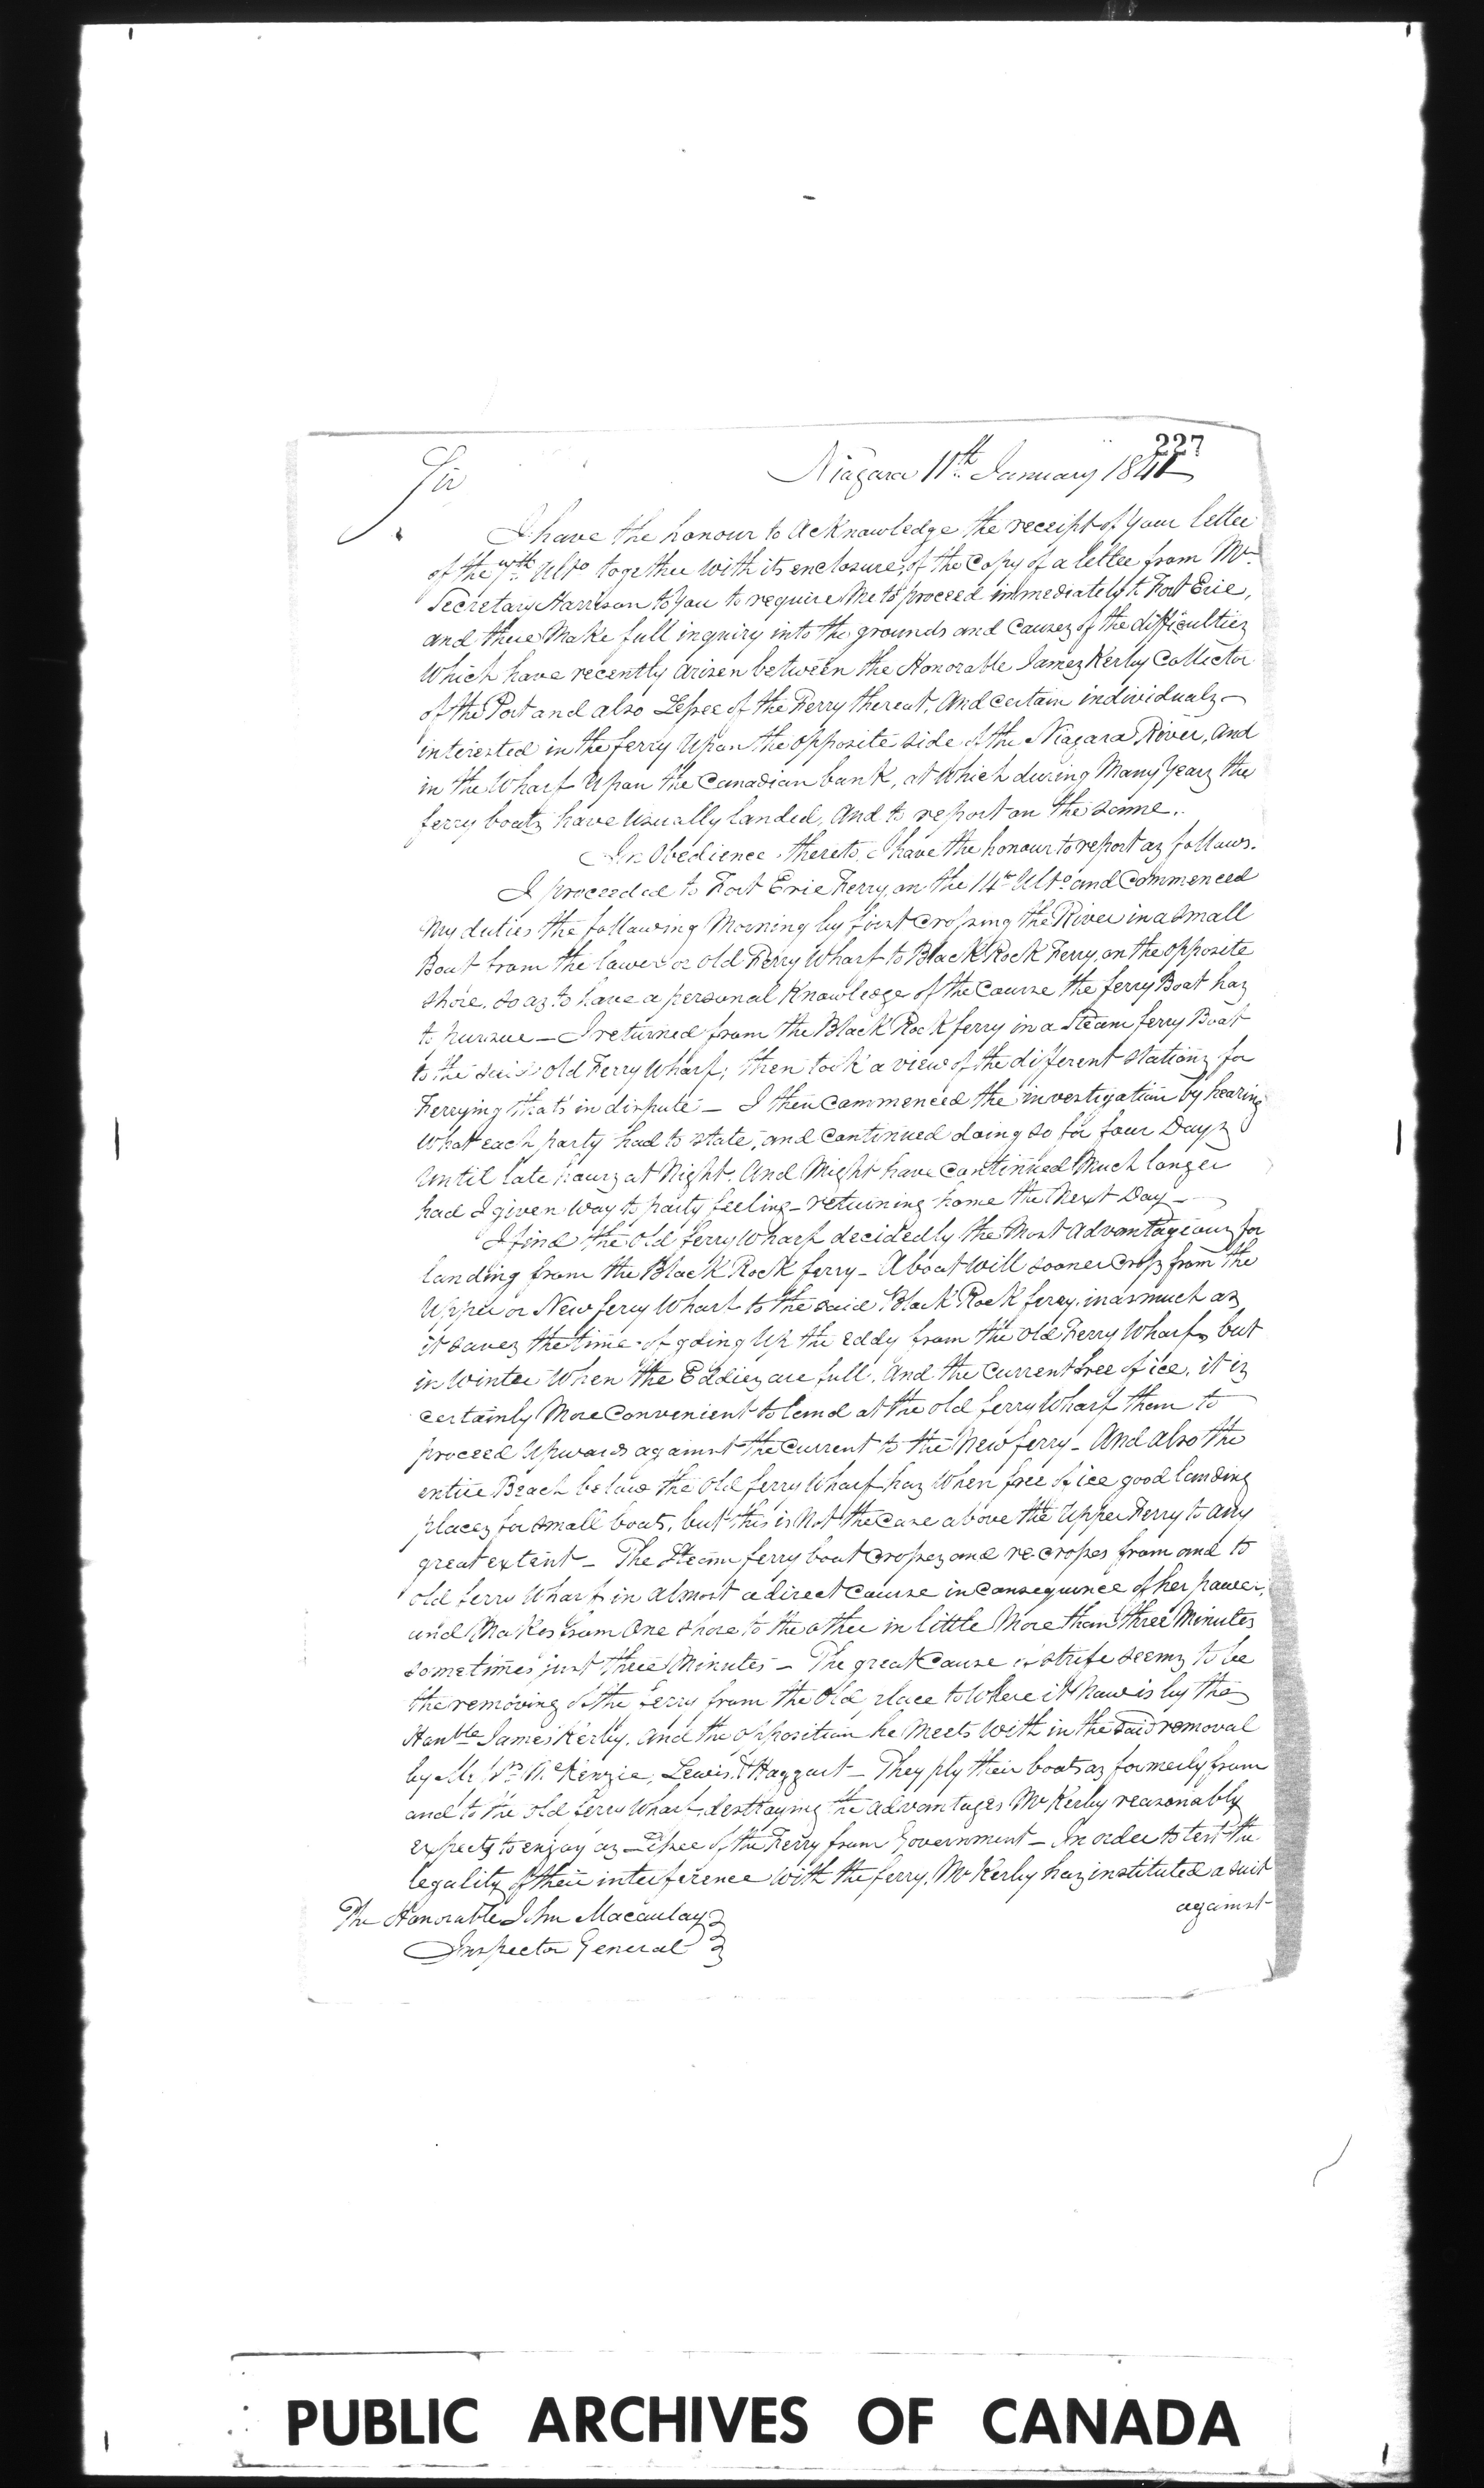 227
Niagara 11th January 1841
Sir
I have the honour to acknowledge the receipt of your letter
of the 7th Ulto together with its enclosure, of the Copy of a letter from Mr
Secretary Harrison to you to require me to proceed immediately to Fort Erie,
and there make full inquiry into the grounds and causes of the difficulties
which have recently arisen between the Honorable James Kerby Collector
of the Port and also Lessee of the Ferry thereat, and certain individuals
interested in the ferry upon the opposite side of the Niagara River, and
in the Wharf upon the Canadian bank, at which during many years the
ferry boats have usually landed, and to report on the same.
In Obedience thereto, I have the honour to report as follows.
I proceeded to Fort Erie Ferry, on the 14th Ulto and Commenced
my duties the following morning by first crossing the River in a small
Boat from the lower or old Ferry Wharf to Black Rock Ferry, on the opposite
shore, so as to have a personal Knowledge of the course the ferry Boat has
to pursue — I returned from the Black Rock ferry in a Steam ferry Boat
to the said old Ferry Wharf; then took a view of the different stations for
Ferrying that's in dispute — I then commenced the investigation by hearing
what each party had to state, and continued doing so for four Days
until late hours at Night. And might have continued much longer
had I given way to party feeling — returning home the next Day —
I find the old ferry wharf decidedly the most advantageous for
landing from the Black Rock ferry — A boat will sooner cross from the
upper or New ferry Wharf to the said Black Rock ferry, inasmuch as
it saves the time of going up the eddy from the old Ferry Wharf, but
in winter when the Eddies are full, and the current free of ice, it is
certainly more convenient to land at the old ferry Wharf than to
proceed upwards against the current to the New ferry — And also the
entire Beach below the old ferry Wharf has when free of ice good landing
places for small boats, but this is not the case above the upper Ferry to any
great extent — The Steam ferry boat crosses and re-crosses from and to
old ferry Wharf in almost a direct course in consequence of her power,
and makes from one shore to the other in little more than three minutes
sometimes just three minutes — The great cause of strife seems to be
the removing of the ferry from the old place to where it now is by the
Honble James Kerby, and the opposition he meets with in the said removal
by Mr Wm McKenzie, Lewis & Haggart — They ply their boats as formerly from
and to the old ferry Wharf, destroying the advantages Mr Kerby reasonably
expects to enjoy as Lessee of the Ferry from Government — In order to test the
legality of their interference with the ferry, Mr Kerby has instituted a suit
against
The Honorable John Macaulay
Inspector General
PUBLIC ARCHIVES OF CANADA